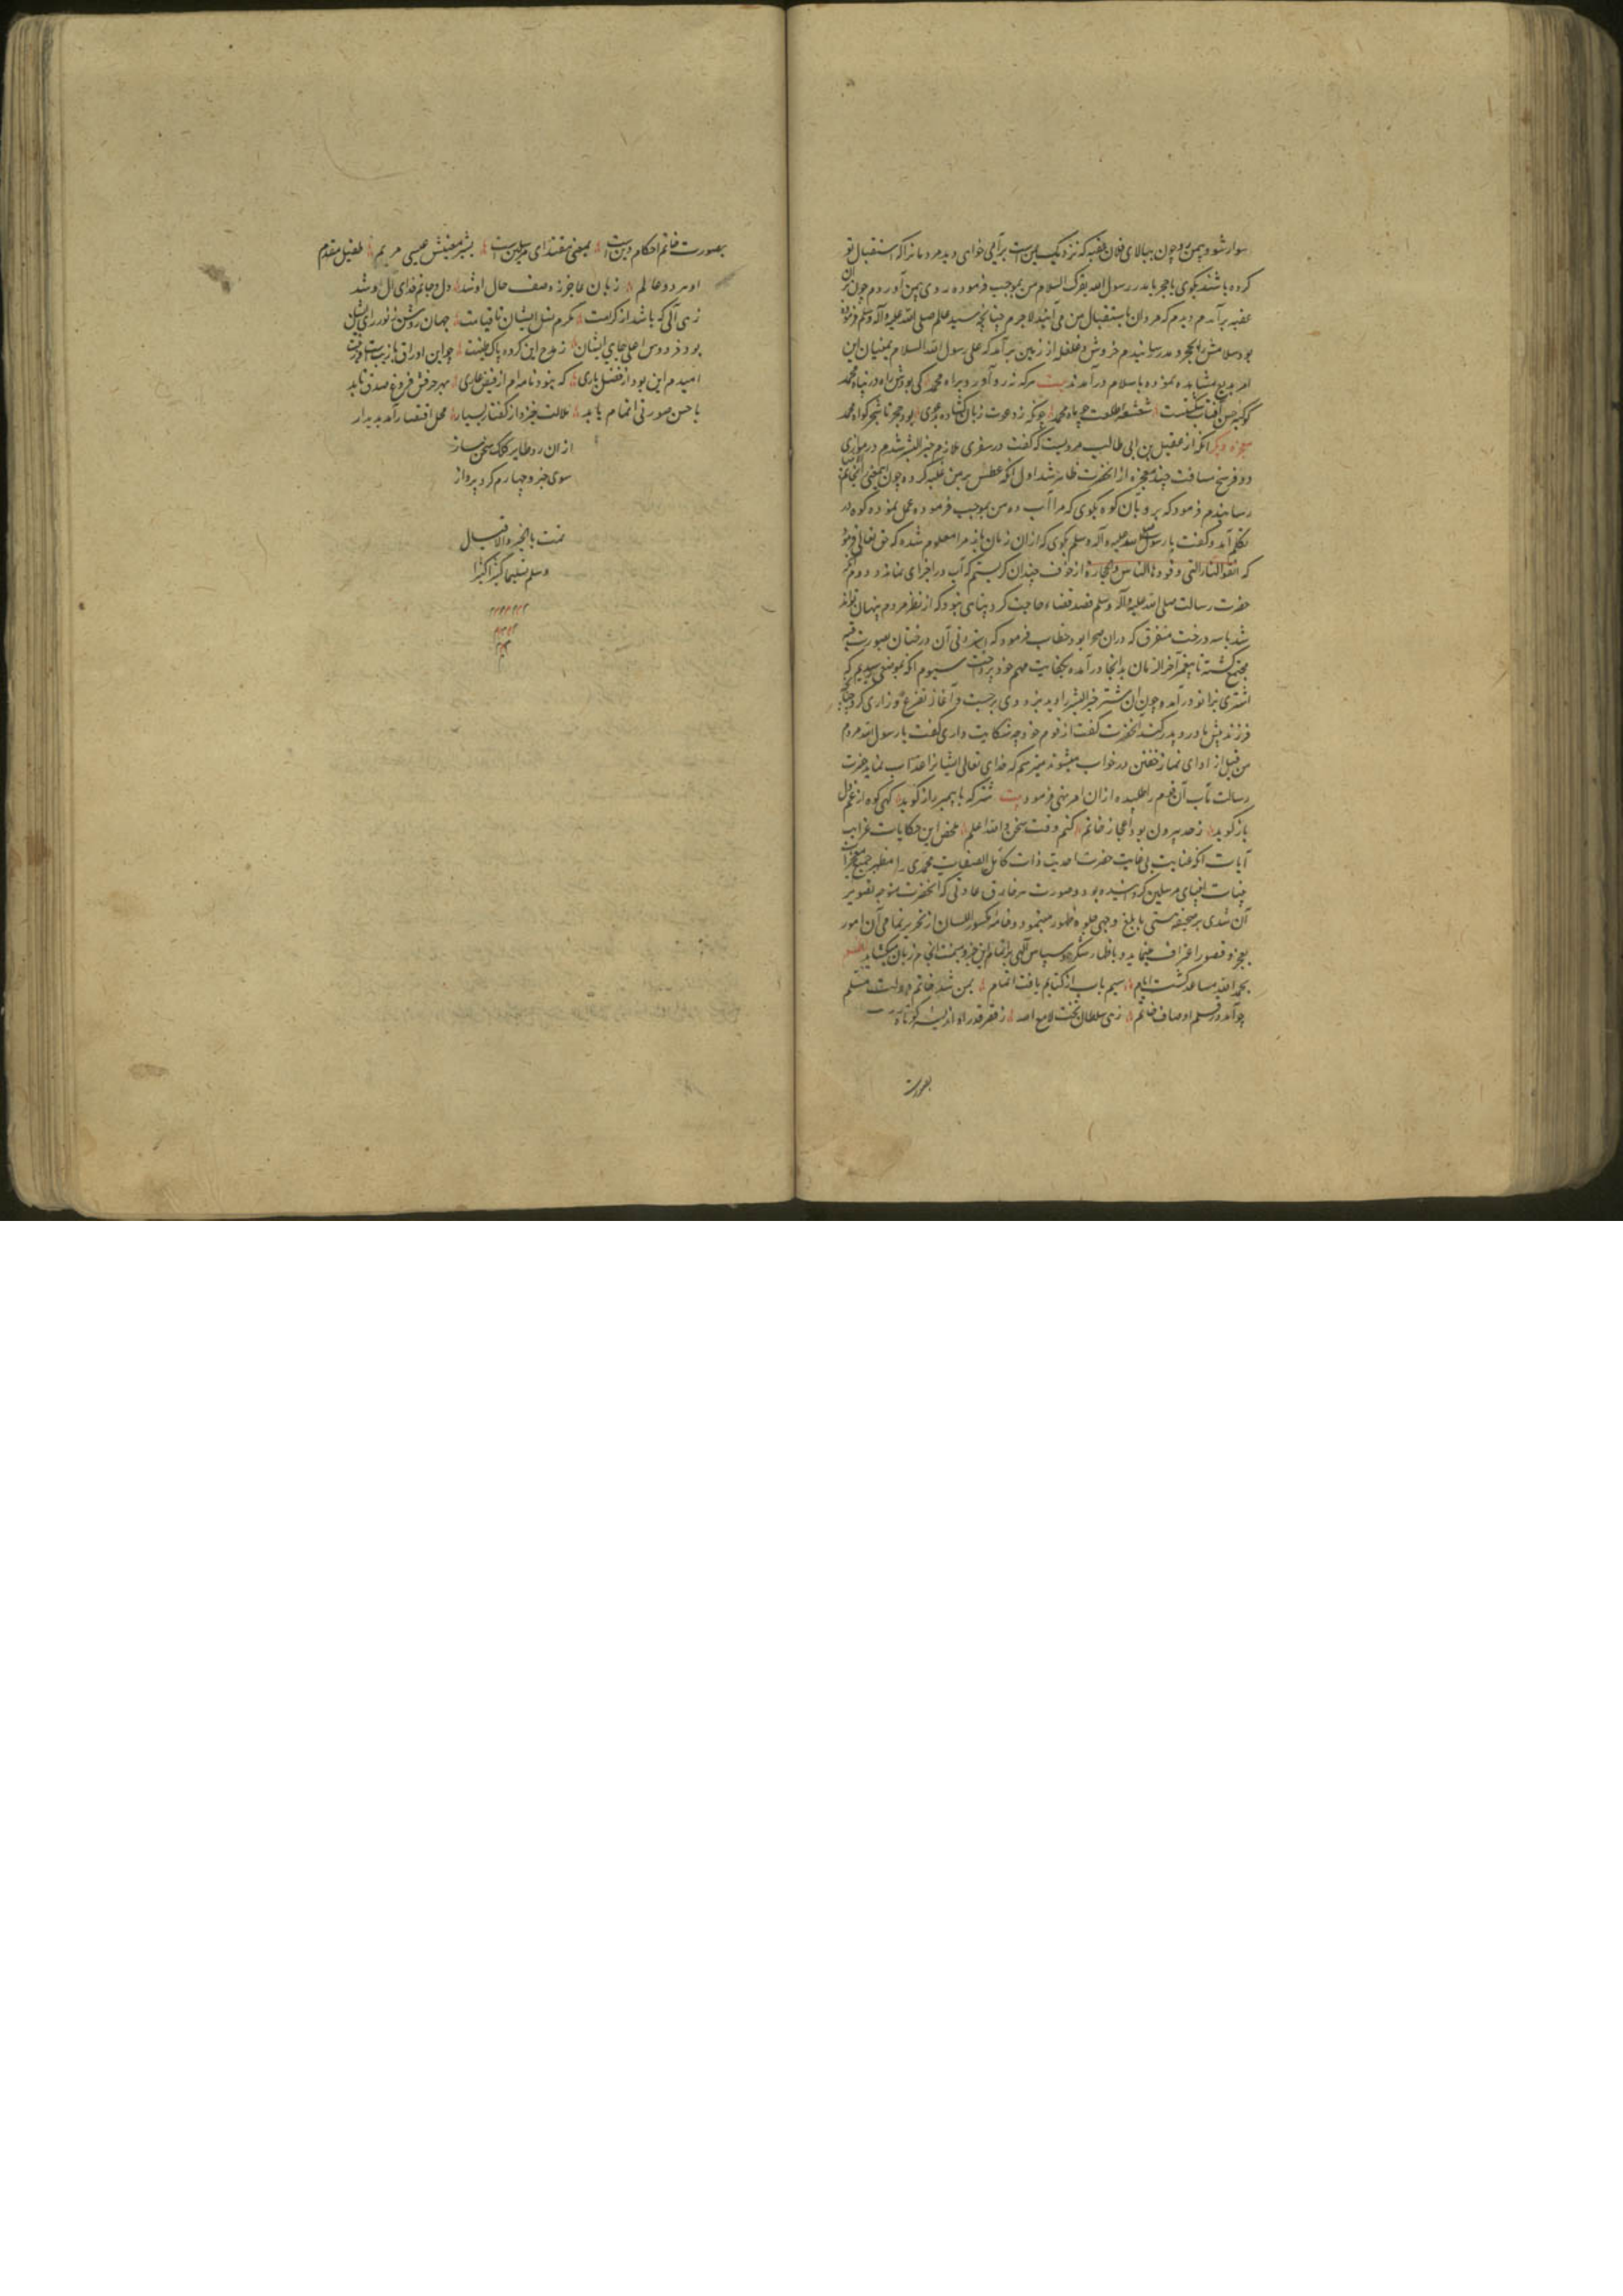 سوار شو و بیمن رو چون ببالای فلان عقبه که نزدیک یمن است برآیی خواهی دید مردمانرا که استقبال تو
کرده باشند بگوی یا حجر یا مدر رسول الله یقرئک السلام من بموجب فرموده روی بیمن آوردم چون بران
عقبه برآمدم دیدم که مردمان باستقبال من می آیند لاجرم چنانچه سید عالم صلی الله علیه وآله وسلم فرموده
بود سلامش بحجر و مدر رسانیدم خروش و غلغله از زمین برآمد که علی رسول الله السلام یمنیان این
امر بدیع مشاهده نموده باسلام درآمدند بیت هرکه نه رو آورد براه محمد کی بودش راه در پناه محمد
کوکبه حسن آفتاب شکست شعشعه طلعت چو ماه محمد چونکه ز دعوت زبان گشاده بمعجزی بود حجر تا شجر گواه محمد
معجزه دیگر آنکه از عقیل بن ابی طالب مرویست که گفت در سفری ملازم خیر البشر شدم در موازی
دو فرسخ مسافت چند معجزه از آنحضرت ظاهر شد اول آنکه عطش بر من غلبه کرده چون اینمعنی بآنجناب
رسانیدم فرمود که برو بآن کوه بگوی که مرا آب ده من بموجب فرموده عمل نموده کوه در
تکلم آمد و گفت با رسول صلی الله علیه وآله وسلم بگوی که ازان زمان باز مرا معلوم شده که حق تعالی فرموده
که اتقوا النار التی وقودها الناس والحجارة از خوف چندان گریستم که آب در اجزای من نماند دوم آنکه
حضرت رسالت صلی الله علیه وآله وسلم قصد قضاء حاجت کرد پناهی نبود که از نظر مردم پنهان تواند
شد با سه درخت متفرق که دران صحرا بود خطاب فرمود که آن درختان بصورت قبه
مجتمع گشته تا پیغمبر آخر الزمان بدانجا درآمده بکفایت مهم خود پرداخت سیوم آنکه بموضعی رسیدیم که
اشتری بزانو درآمده چون آن شتر خیر البشر را دید بزودی برجست و آغاز تضرع و زاری کرد چنانچه
فرزند پیش مادر و پدر کند آنحضرت گفت از قوم خود چه شکایت داری گفت یا رسول الله مردم
من قبل از ادای نماز خفتن در خواب میشوند میترسم که خدای تعالی ایشانرا عذاب نماید حضرت
رسالت مآب آن قوم را طلبیده ازان امر نهی فرمود بیت شتر که با پیمبر راز گوید گهی کوه از غم دل
باز گوید ز حد بیرون بود اعجاز خاتم کنم وقت سخن والله اعلم ملخص این حکایات غرایب
آیات آنکه عنایت بی غایت حضرت احدیت ذات کامل الصفات محمدی را مظهر جمیع معجزات
بینات انبیای مرسلین گردانیده بود و صورت هر خارق عادتی که آنحضرت متوجه تصویر
آن شدی بر صحیفه هستی بابلغ وجهی جلوه ظهور مینمود و خامه مکسور اللسان از تحریر تمامی آن امور
بعجز و قصور اعتراف مینماید و باظهار شکر و سپاس الهی بر اتمام این جزو میمنت انجام زبان میگشاید نظم
بحمد الله مساعد گشت ایام سیم باب از کتابم یافت اتمام بمن شد خاتم دولت مسلم
چو آمد در قلم اوصاف خاتم زهی سلطان تخت لامع الله ز قصر قدر او اندیشه کوتاه
بصورت
بصورت خاتم احکام دین است بمعنی مقتدای مرسلین است بشیر مقدمش عیسی مریم طفیل مقدم
او هر دو عالم زبان عاجز ز وصف حال او شد دل و جانم فدای آل او شد
زهی آلی که باشد از کرامت مکرم نسل ایشان تا قیامت جهان روشن ز نور رای ایشان
بود فردوس اعلی جای ایشان ز مدح این گروه پاک طینت چو این اوراق یازیب است و زینت
امیدم این بود از فضل باری که نبود نامه ام از فیض عاری بهر حرفش فروغ صدق تابد
باحسن صورتی اتمام یابد ملالت خیزد از گفتار بسیار محل اقتصار آمد پدیدار
ازان رو طایر کلک سخن ساز
سوی جزو چهارم کرد پرواز
تمت بالخیر والاقبال
وسلم تسلیما کثیرا کثیرا